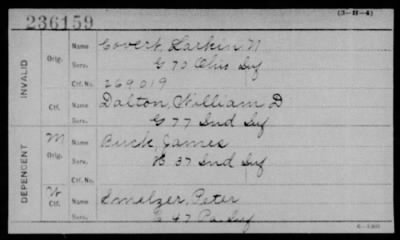 236159
(3-H-4)
INVALID
Orig.
Name Covert, Larkin N
Serv. G 70 Ohio Inf
Ctf. No. 269019
Ctf.
Name Dalton, William D
Serv. G 77 Ind Inf
DEPENDENT
M
Orig.
Name Buck, James
Serv. B 37 Ind Inf
Ctf. No.
W
Ctf.
Name Smelzer, Peter
Serv. E 47 Pa Inf